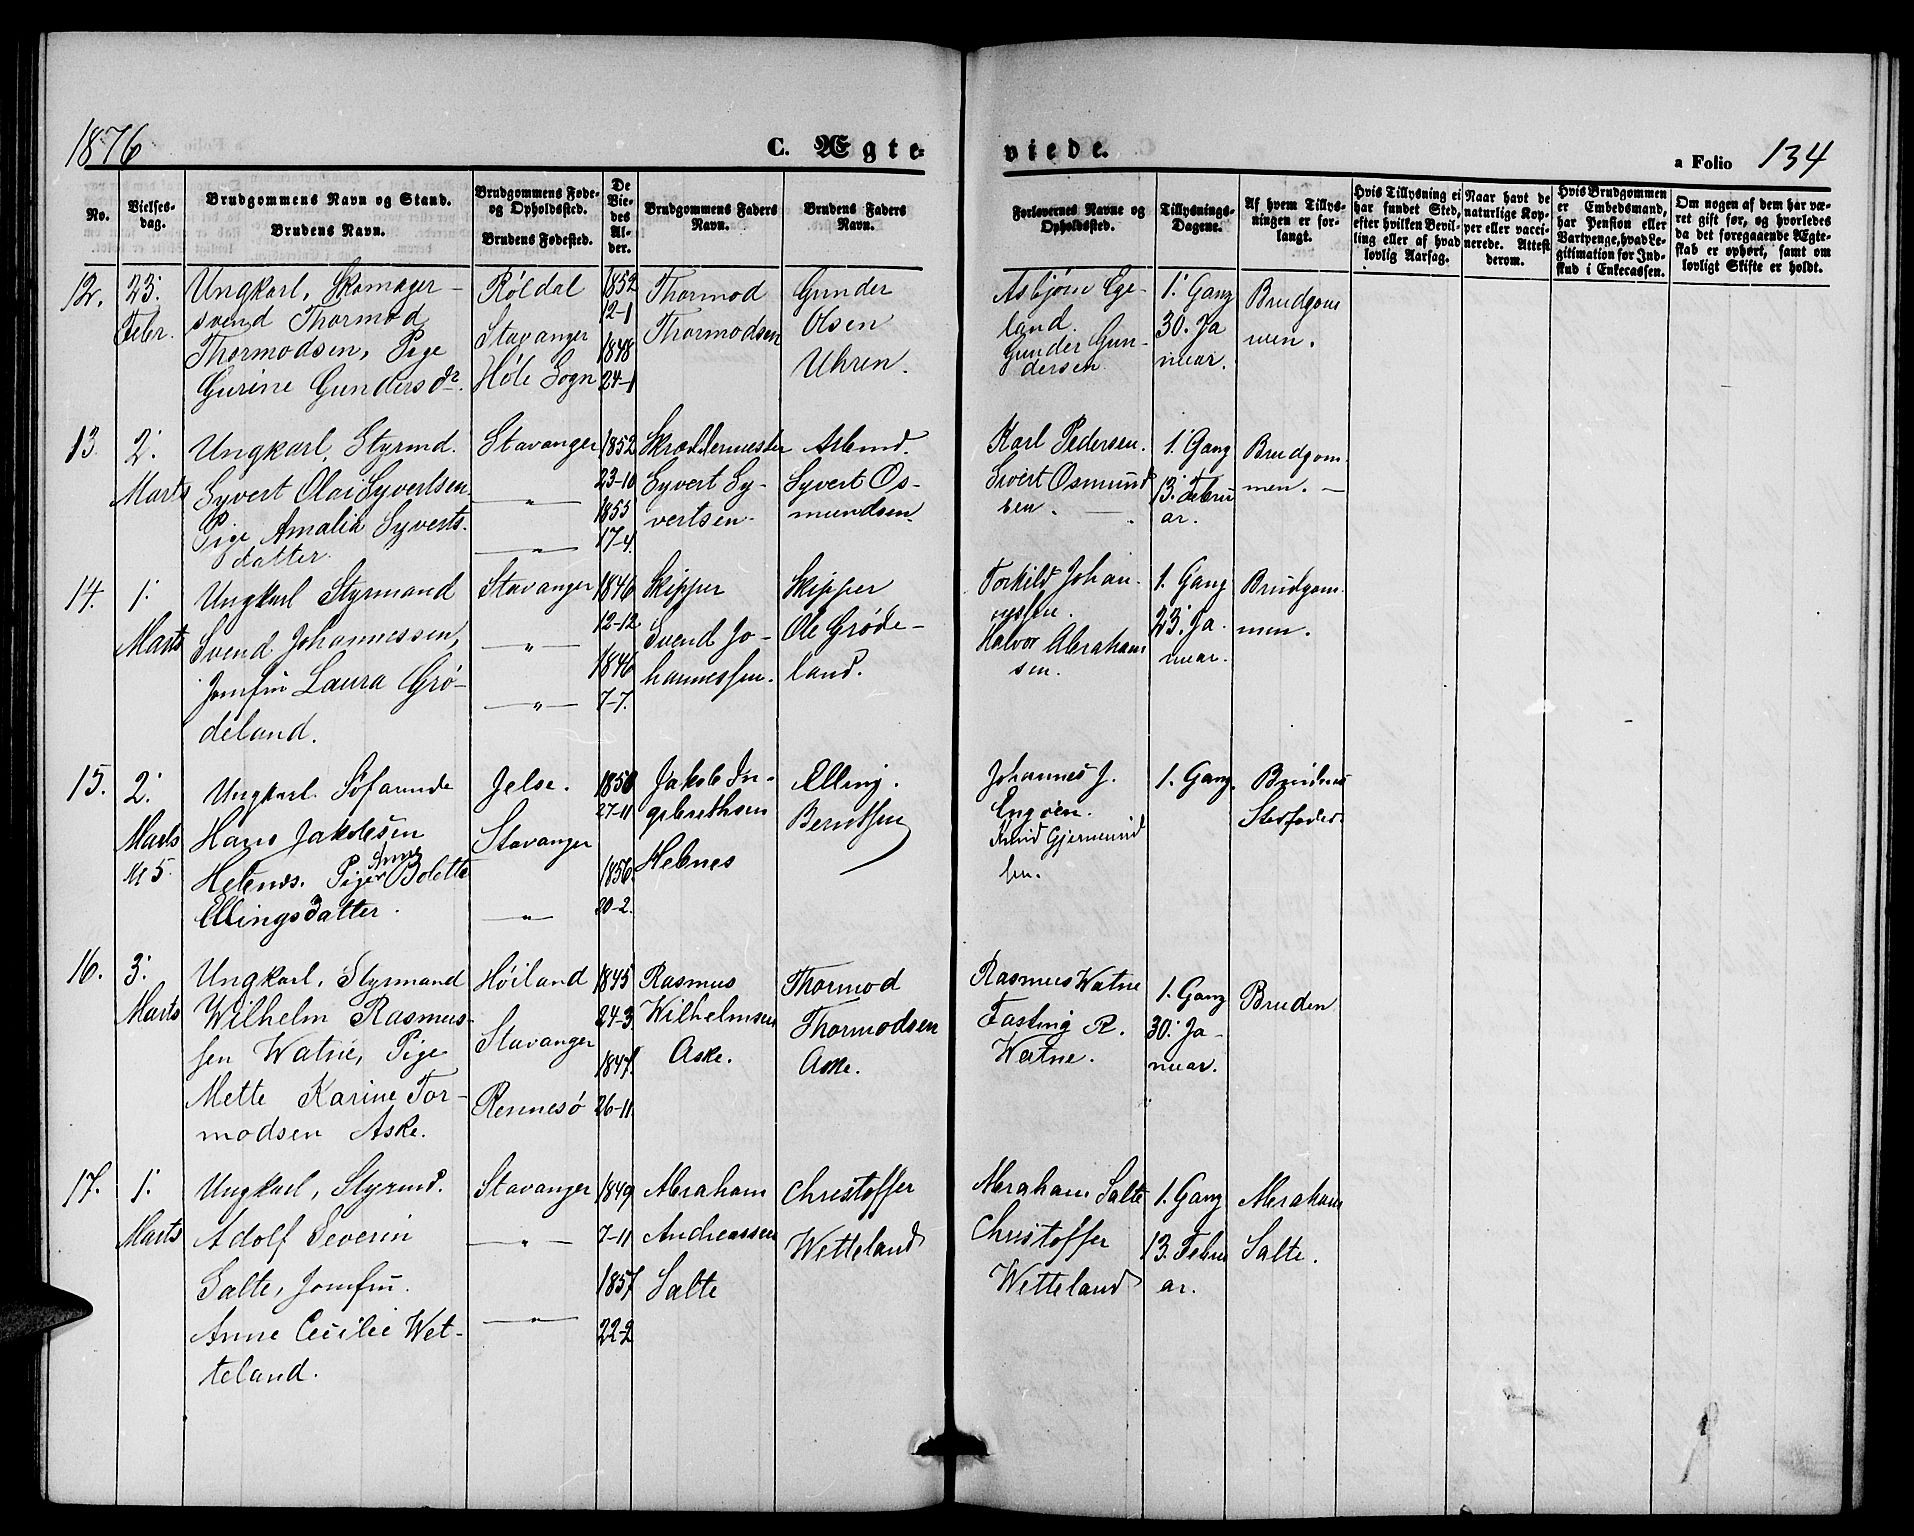 1876
C. Ægte-
viede.
a Folio 134
No.
Vielses-
dag.
Brudgommens Navn og Stand.
Brudens Navn.
Brudgommens Føde-
og Opholdssted.
Brudens Fødested.
De
Vie-
des
Al-
der.
Brudgommens Faders
Navn.
Brudens Faders
Navn.
Forlovernes Navne og
Opholdssted.
Tillysnings-
Dagene.
Af hvem Tillys-
ningen er for-
langt.
Hvis Tillysning ei
har fundet Sted,
efter hvilken Bevil-
ling eller af hvad
lovlig Aarsag.
Naar havt de
naturlige Kop-
per eller vacci-
nerede. Attest
derom.
Hvis Brudgommen
er Embedsmand,
har Pension eller
Vartpenge, hvad Le-
gitimation for Ind-
skud i Enkecassen.
Om nogen af dem har væ-
ret gift før, og hvorledes
da det foregaaende Ægte-
skab er ophørt, samt om
lovligt Skifte er holdt.
12.
23.
Febr.
Ungkarl, Skomager-
svend Thormod
Thormodsen, Pige
Gurine Gundersdr.
Røldal
Stavanger
Høle Sogn
1852
12-1
1848
24-1
Thormod
Thormodsen
Gunder
Olsen
Uhren.
Asbjørn Ege-
land.
Gunder Gun-
dersen.
1. Gang
30. Ja
nuar.
Brudgom
men.
13.
2.
Marts
Ungkarl, Styrmd.
Syvert Olai Syvertsen
Pige Amalia Syverts-
datter.
Stavanger
— " —
— " —
1852
23-10
1855
17-4
Skræddermester
Syvert Sy-
vertsen.
Arbmd.
Syvert Os-
mundsen.
Karl Pedersen.
Sivert Osmund
sen.
1. Gang
13. Febru
ar.
Brudgom
men. —
14.
1.
Marts
Ungkarl Styrmand
Svend Johannessen,
Jomfru Laura Grø-
deland.
Stavanger
— " —
— " —
1846
12-12
1846
7-7.
Skipper
Svend Jo-
hannessen.
Skipper
Ole Grøde-
land.
Torkild Johan-
nessen.
Halvor Abraham
sen.
1. Gang
23. Ja-
nuar.
Brudgom
men.
15.
2.
Marts
M 5.
Ungkarl. Søfarende
Hans Jakobsen
Helenes. Pige Anne Bolette
Ellingsdatter.
Jelse.
Stavanger
— " —
1850
27-11
1856.
20-2.
Jakob In-
gebrethsen
Helenes
Elling.
Berntsen
Johannes J.
Engøen.
Knud Gjermund
sen.
1. Gang.
Brudens
Stedfader
16.
3.
Marts
Ungkarl, Styrmand
Wilhelm Rasmus-
sen Watne, Pige
Mette Karine Tor-
modsen Aske.
Høiland
Stavanger
Rennesø
1845
24-3
1847.
26-11
Rasmus
Wilhelmsen
Aske.
Thormod
Thormodsen
Aske.
Rasmus Watne
Fasting R.
Watne.
1. Gang
30. Ja-
nuar.
Bruden
17.
1.
Marts
Ungkarl, Styrmd.
Adolf Severin
Salte, Jomfru.
Anne Cecilie Wet-
teland.
Stavanger
— " —
— " —
1849
7-11
1857
22-2
Abraham
Andreassen
Salte
Christoffer
Wetteland
Abraham Salte
Christoffer
Wetteland
1. Gang
13. Febru
ar.
Abraham
Salte.